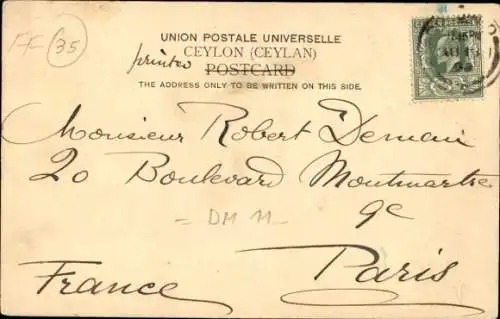 FF 35
UNION POSTALE UNIVERSELLE
CEYLON (CEYLAN)
printed
POSTCARD
THE ADDRESS ONLY TO BE WRITTEN ON THIS SIDE.
Monsieur Robert Demain
20 Boulevard Montmartre
9e
= DM 11 -
France Paris